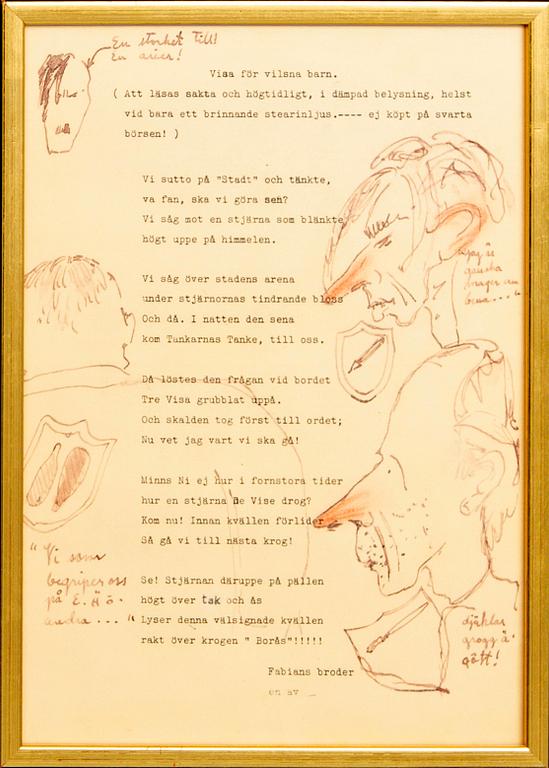 En storhet till!
En arier!
Visa för vilsna barn.
( Att läsas sakta och högtidligt, i dämpad belysning, helst
vid bara ett brinnande stearinljus.---- ej köpt på svarta
börsen! )
Vi sutto på "Stadt" och tänkte,
va fan, ska vi göra sen?
Vi såg mot en stjärna som blänkte
högt uppe på himmelen.
Vi såg över stadens arena
under stjärnornas tindrande bloss
Och då. I natten den sena
kom Tankarnas Tanke, till oss.
Då löstes den frågan vid bordet
Tre Visa grubblat uppå.
Och skalden tog först till ordet;
Nu vet jag vart vi ska gå!
Minns Ni ej hur i fornstora tider
hur en stjärna De Vise drog?
Kom nu! Innan kvällen förlider
Så gå vi till nästa krog!
Se! Stjärnan däruppe på pällen
högt över tak och ås
Lyser denna välsignade kvällen
rakt över krogen " Borås"!!!!!
Fabians broder
en av _
jag är
ganska
mager om
bena..."
"Vi som
begriper oss
på
andra ... "
djäklar
grogg ä'
gött!